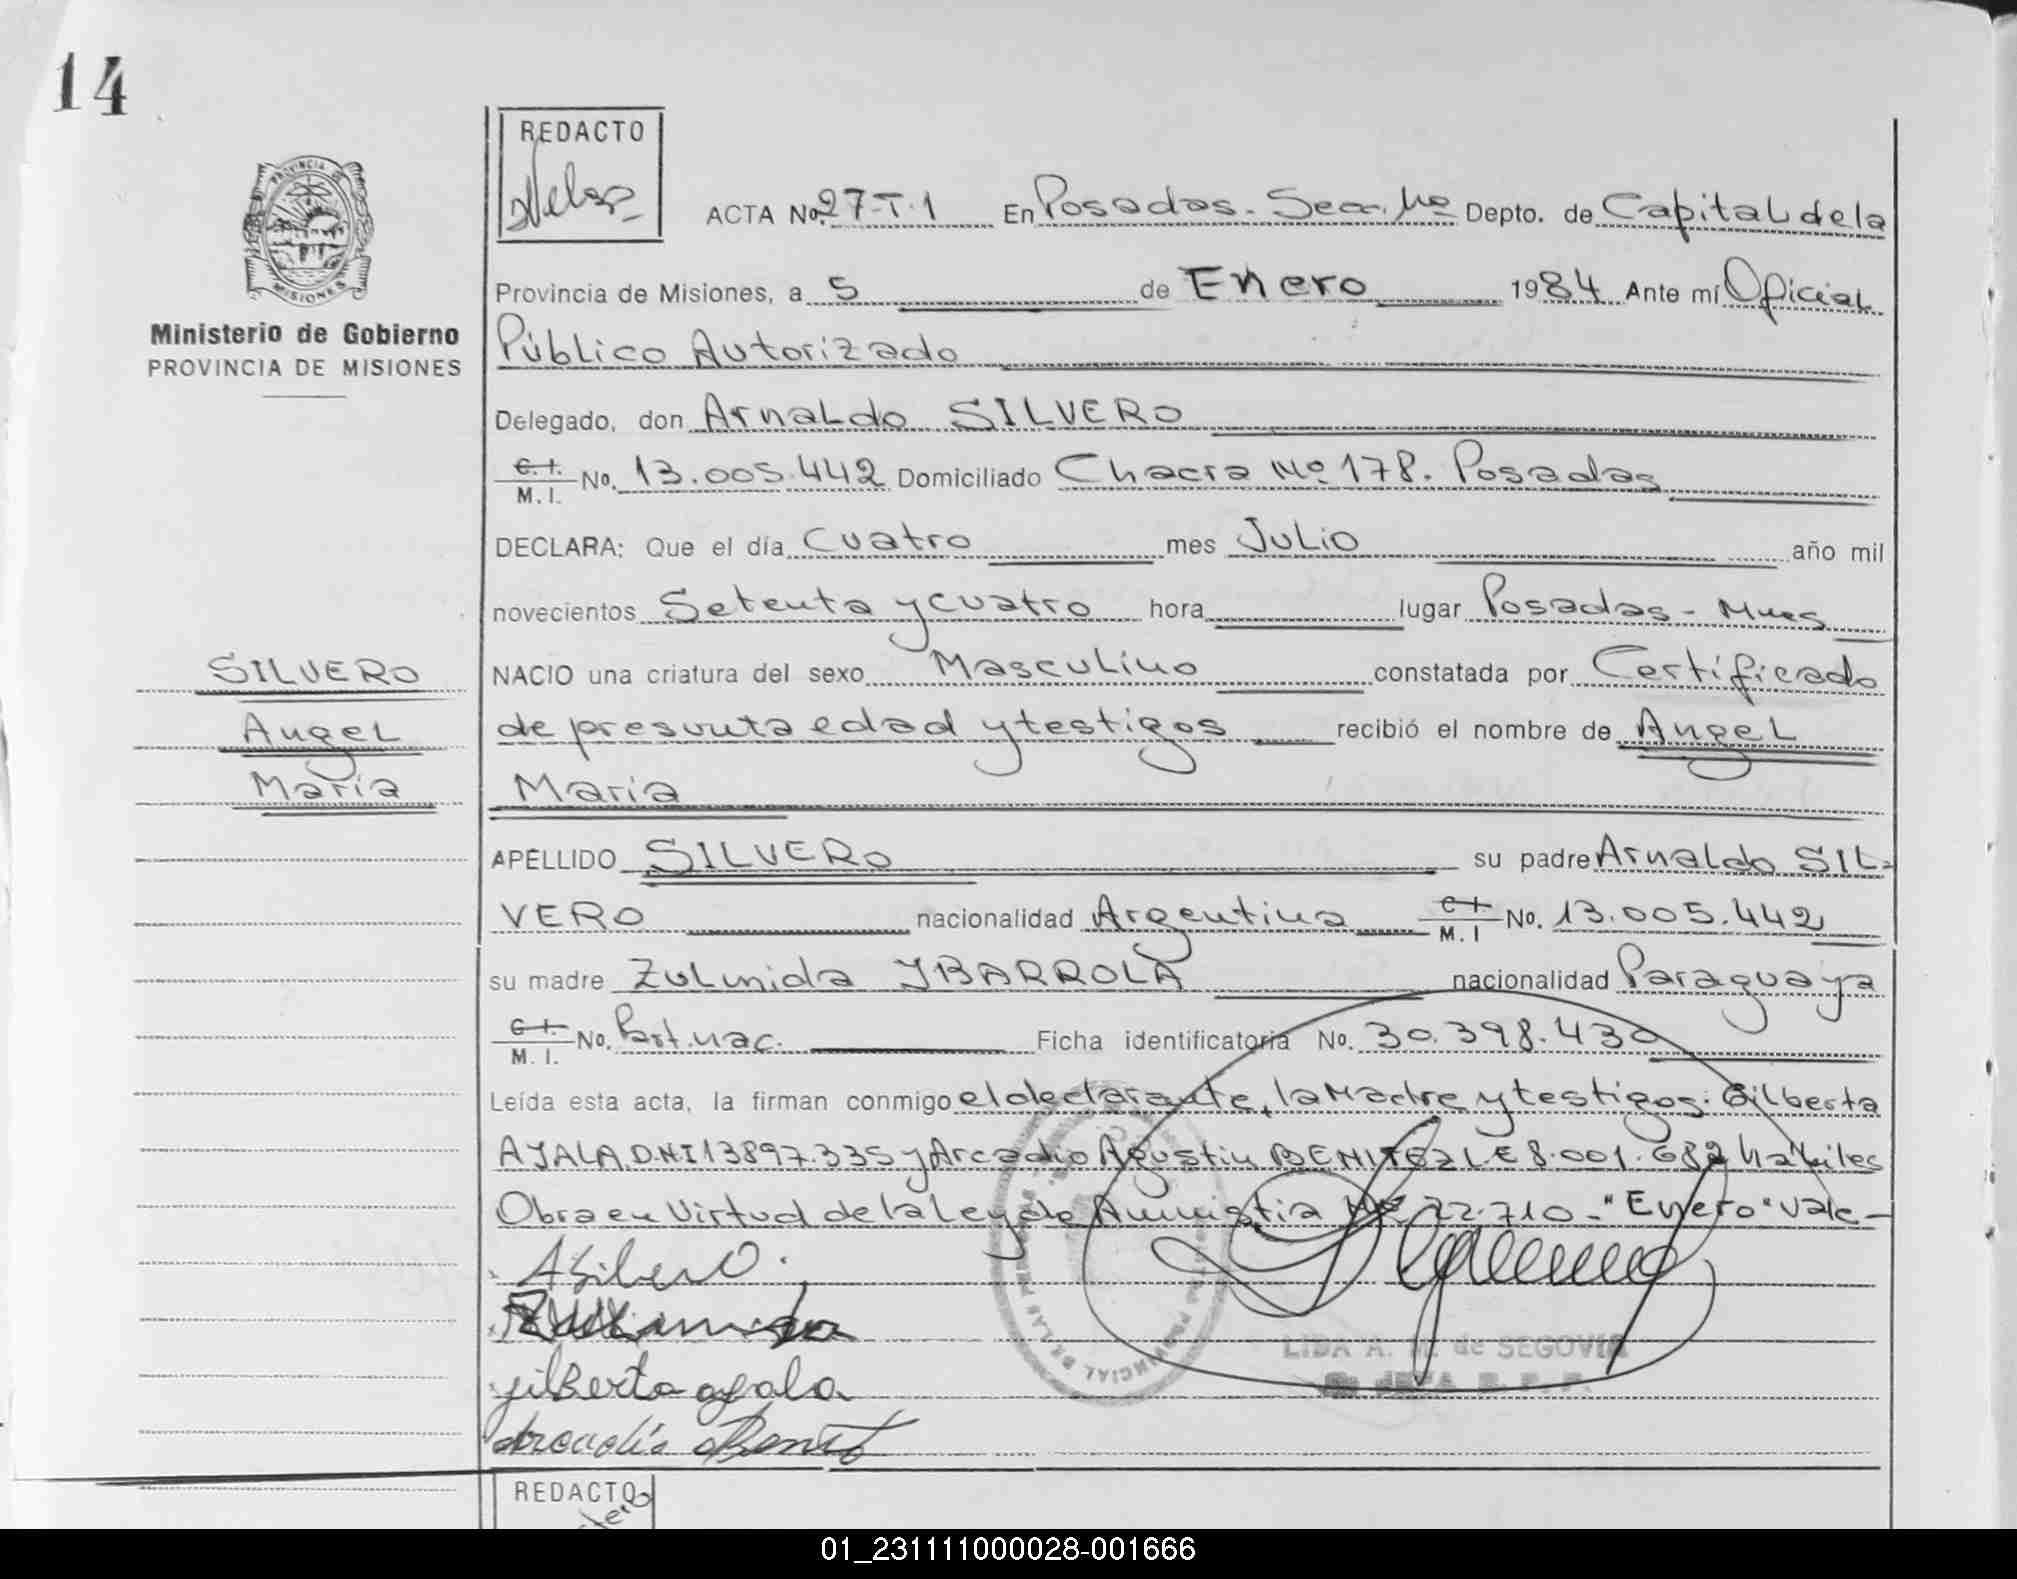 14
REDACTO
ACTA No. 27-T-1 En Posadas. Secc. 1a Depto. de Capital de la
PROVINCIA DE
MISIONES
Provincia de Misiones, a 5 de Enero 1984 Ante mí Oficial
Ministerio de Gobierno
PROVINCIA DE MISIONES
Público Autorizado
Delegado, don Arnaldo SILVERO
C.I. M.I. No. 13.005.442 Domiciliado Chacra No. 178. Posadas
DECLARA: Que el día Cuatro mes Julio año mil
novecientos Setenta y cuatro hora lugar Posadas - Mnes
SILVERO
NACIO una criatura del sexo Masculino constatada por Certificado
Angel
de presunta edad y testigos recibió el nombre de Angel
Maria
Maria
APELLIDO SILVERO su padre Arnaldo SIL-
VERO nacionalidad Argentina C.I. M.I No. 13.005.442
su madre Zulmida YBARROLA nacionalidad Paraguaya
C.I. M.I. No. Part. nac. Ficha identificatoria No. 30.398.430
Leída esta acta, la firman conmigo el declarante, la Madre y testigos: Gilberta
AYALA DNI 13897.335 y Arcadio Agustin BENITEZ LE 8.001.682 habiles
Obra en Virtud de la Ley de Amnistia No 22.710 - "Enero" vale -
A Silvero
Gilberta ayala
Arcadio Benit
LIDA A. M. de SEGOVIA
REDACTO
01_231111000028-001666